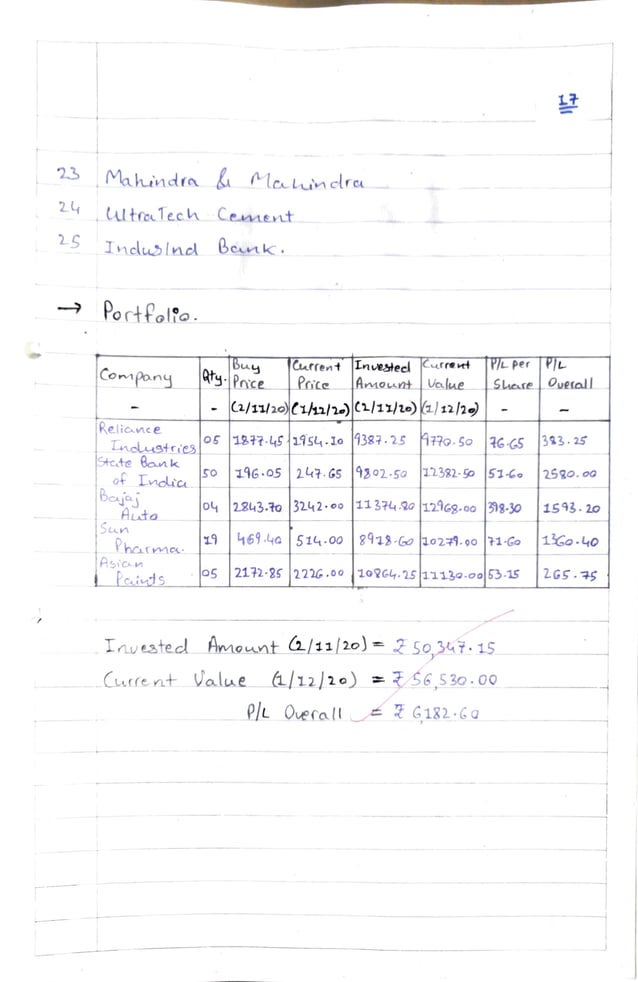 17
23 Mahindra & Mahindra
24 UltraTech Cement
25 IndusInd Bank.
→ Portfolio.
Company Qty. Buy Price Current Price Invested Amount Current Value P/L per Share P/L Overall
- - (2/11/20) (1/12/20) (2/11/20) (1/12/20) - -
Reliance Industries 05 1877.45 1954.10 9387.25 9770.50 76.65 383.25
State Bank of India 50 196.05 247.65 9802.50 12382.50 51.60 2580.00
Bajaj Auto 04 2843.70 3242.00 11374.80 12968.00 398.30 1593.20
Sun Pharma. 19 469.40 514.00 8918.60 10279.00 71.60 1360.40
Asian Paints 05 2172.85 2226.00 10864.25 11130.00 53.15 265.75
Invested Amount (2/11/20) = ₹ 50,347.15
Current Value (1/12/20) = ₹ 56,530.00
P/L Overall = ₹ 6,182.60